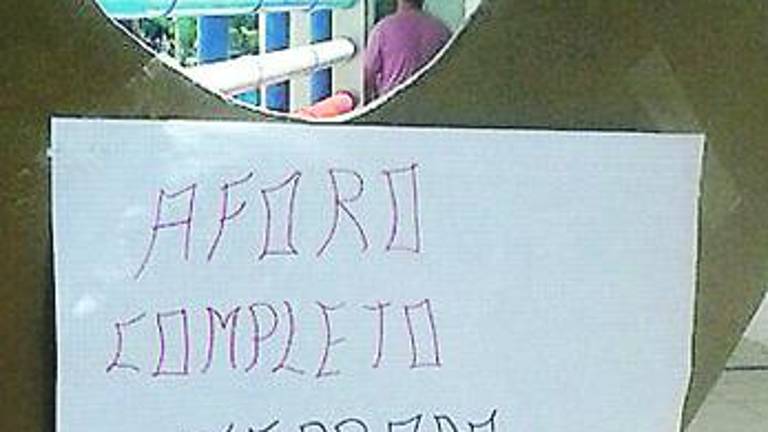 AFORO
COMPLETO